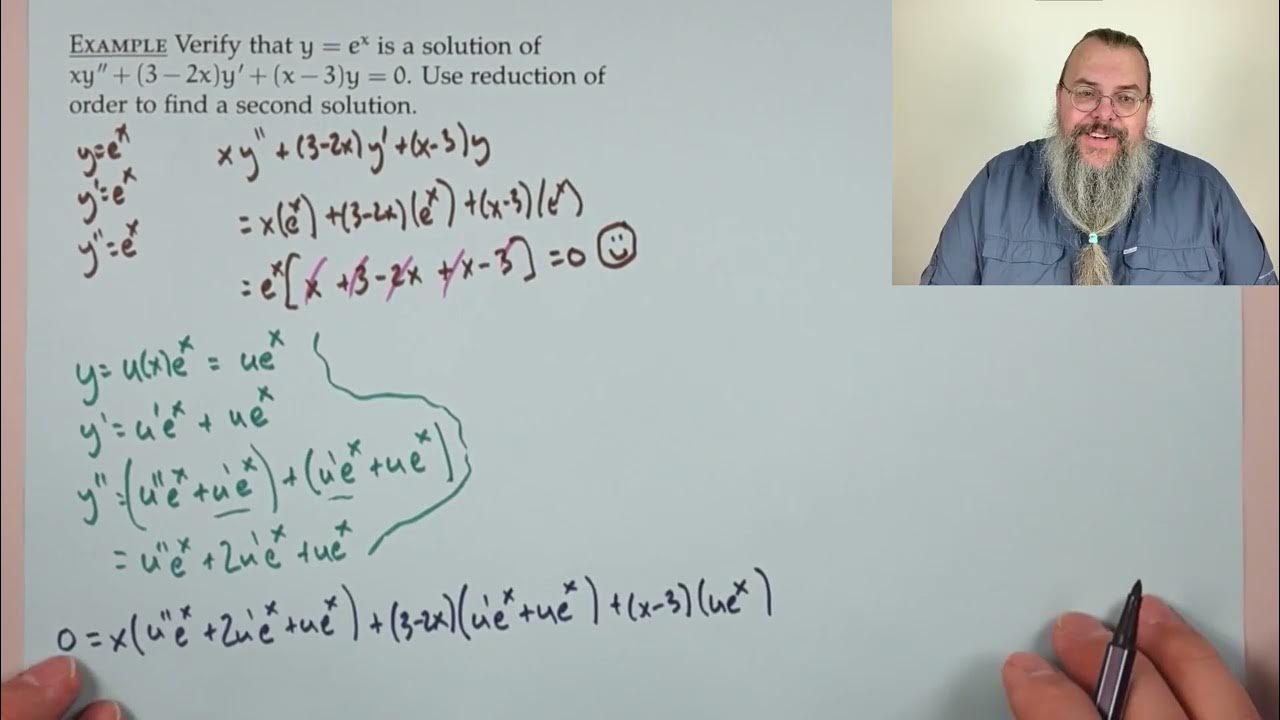 EXAMPLE Verify that y = eˣ is a solution of
xy″ + (3 − 2x)y′ + (x − 3)y = 0. Use reduction of
order to find a second solution.
y=eˣ
y'=eˣ
y"=eˣ
xy" + (3-2x)y' + (x-3)y
= x(eˣ) + (3-2x)(eˣ) + (x-3)(eˣ)
= eˣ[x + 3 - 2x + x - 3] = 0
y = u(x)eˣ = ueˣ
y' = u'eˣ + ueˣ
y" = (u"eˣ + u'eˣ) + (u'eˣ + ueˣ)
= u"eˣ + 2u'eˣ + ueˣ
0 = x(u"eˣ + 2u'eˣ + ueˣ) + (3-2x)(u'eˣ + ueˣ) + (x-3)(ueˣ)